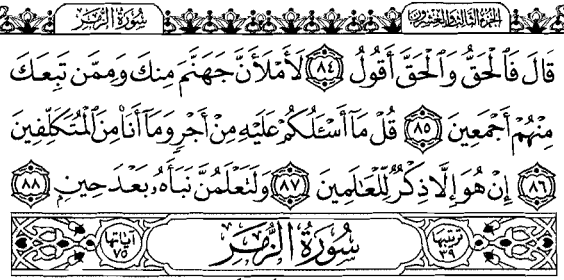 الجزء الثالث والعشرون سورة الزمر
قَالَ فَٱلْحَقُّ وَٱلْحَقَّ أَقُولُ ٨٤ لَأَمْلَأَنَّ جَهَنَّمَ مِنكَ وَمِمَّن تَبِعَكَ
مِنْهُمْ أَجْمَعِينَ ٨٥ قُلْ مَآ أَسْـَٔلُكُمْ عَلَيْهِ مِنْ أَجْرٍ وَمَآ أَنَا۠ مِنَ ٱلْمُتَكَلِّفِينَ
٨٦ إِنْ هُوَ إِلَّا ذِكْرٌ لِّلْعَٰلَمِينَ ٨٧ وَلَتَعْلَمُنَّ نَبَأَهُۥ بَعْدَ حِينٍۭ ٨٨
ترتيبها ٣٩ سُورَةُ الزُّمَرِ آياتها ٧٥